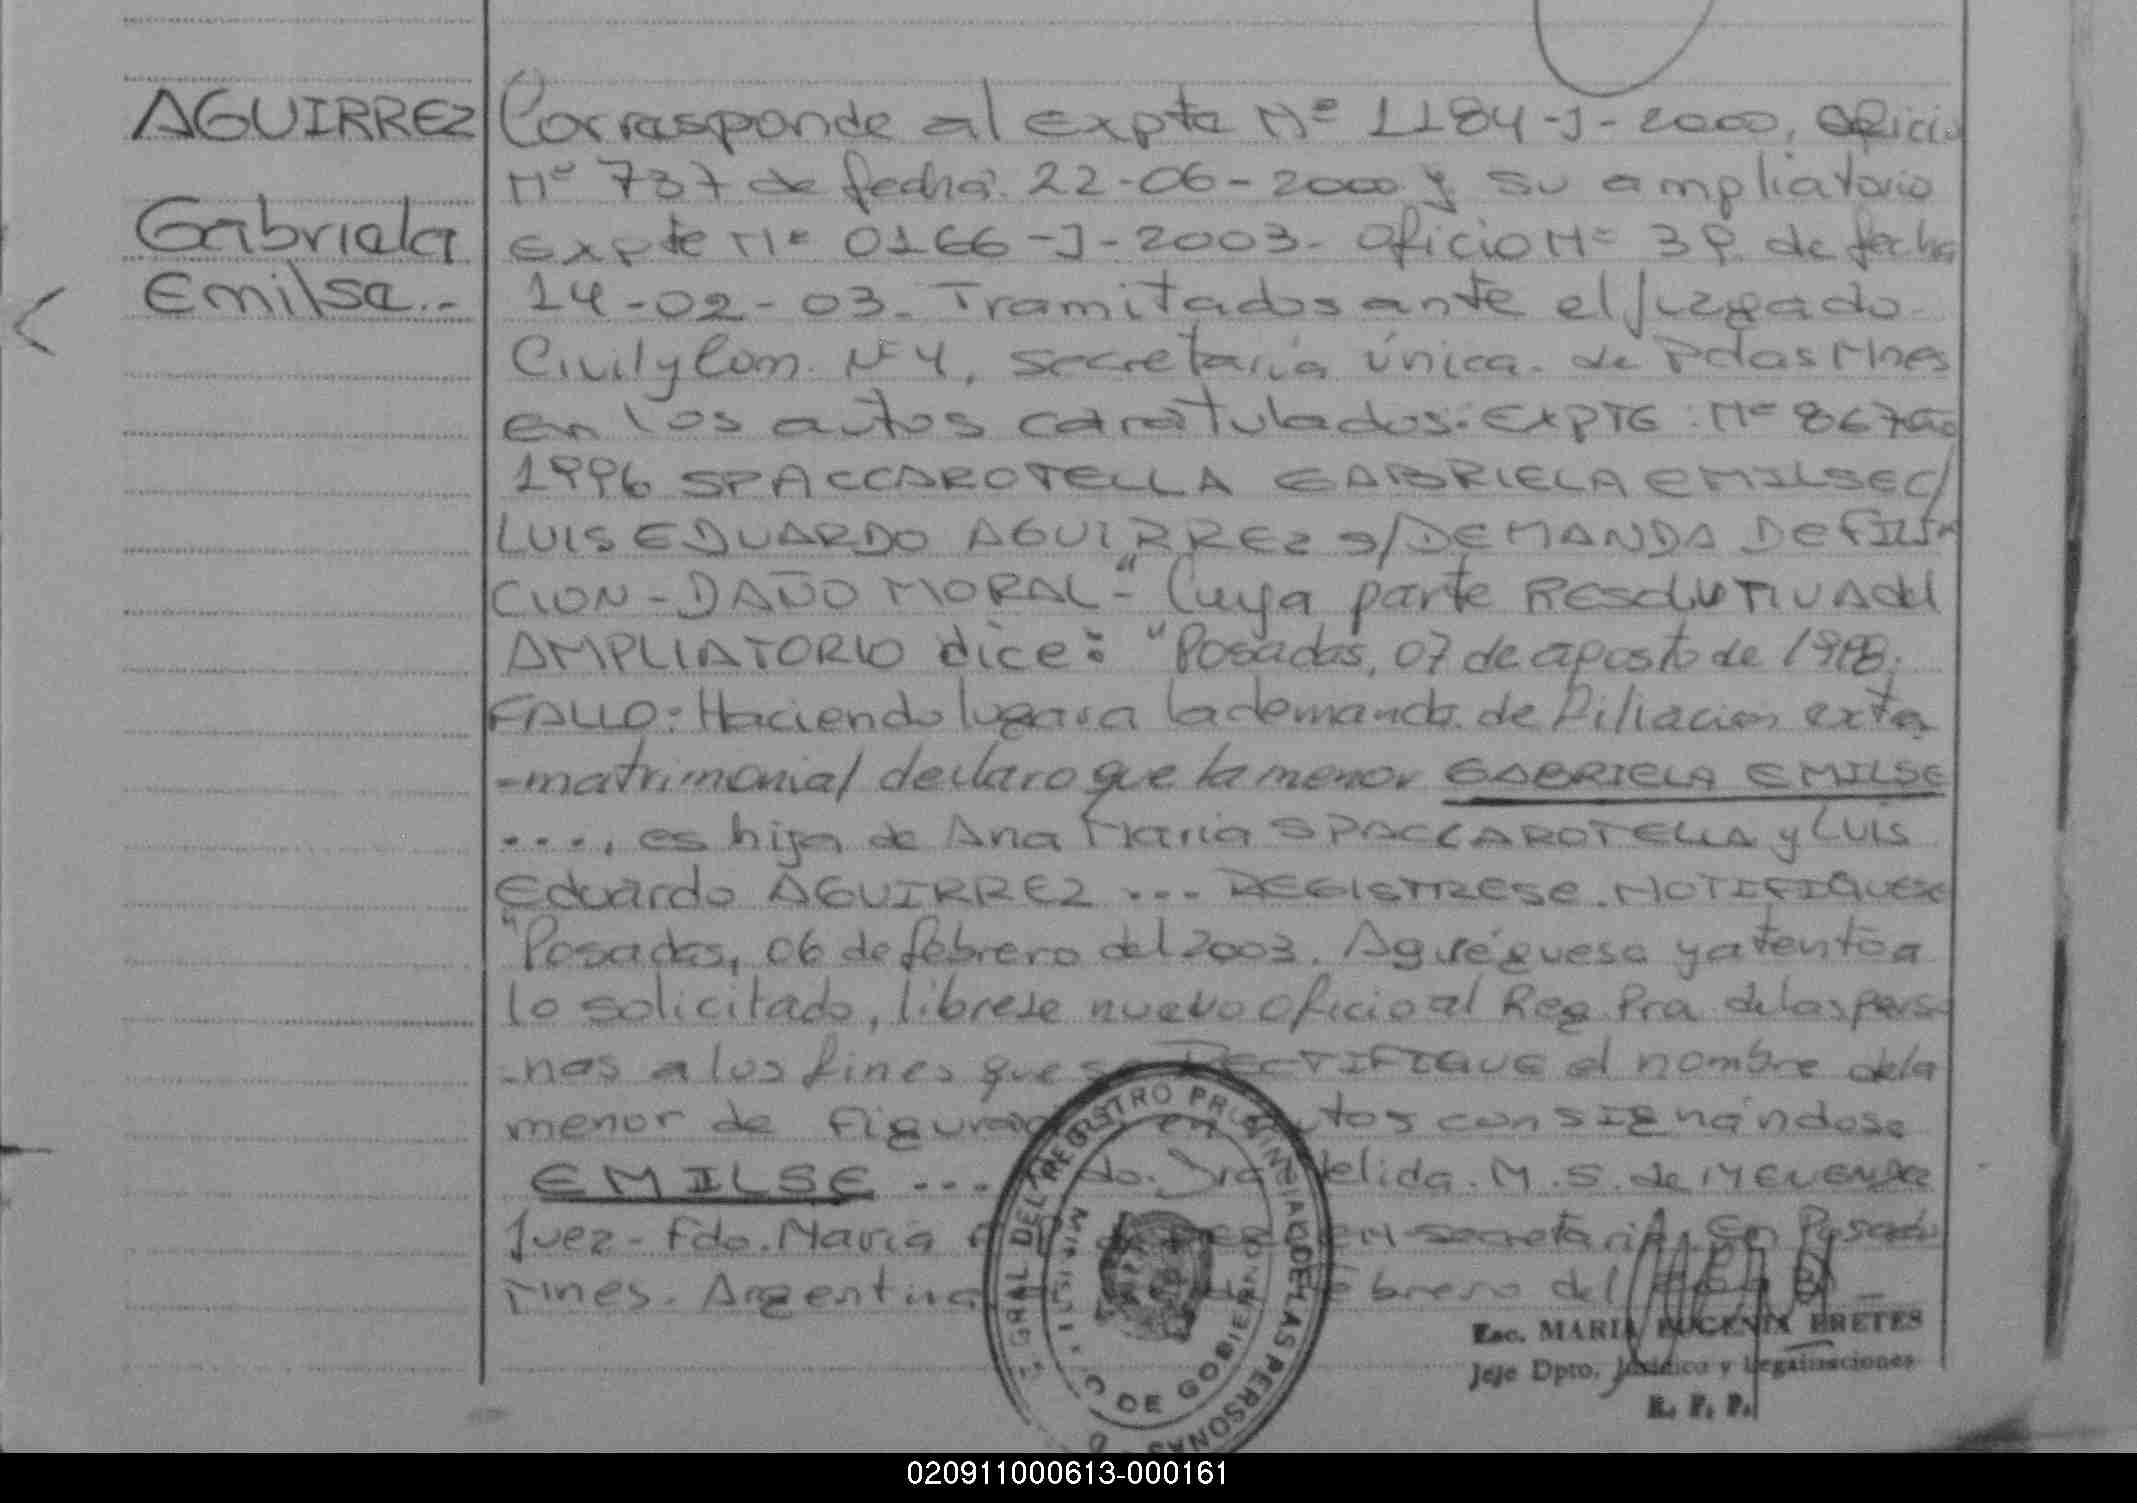 AGUIRREZ
Gabriela
Emilse.-
Corresponde al expte Nº 1184-J-2000, Oficio
Nº 737 de fecha: 22-06-2000 y su ampliatorio
expte Nº 0166-J-2003- Oficio Nº 39 de fecha
14-02-03. Tramitados ante el Juzgado
Civil y Com. Nº 4, secretaría única. de Pdas Mnes
en los autos caratulados: EXPTE: Nº 867
1996 SPACCAROTELLA GABRIELA EMILSE C/
LUIS EDUARDO AGUIRREZ S/ DEMANDA DE FILIA
CION - DAÑO MORAL-" Cuya parte RESOLUTIVA del
AMPLIATORIO dice: "Posadas, 07 de agosto de 1998.
FALLO: Haciendo lugar a la demanda de Filiacion extra
-matrimonial declaro que la menor GABRIELA EMILSE
...., es hija de Ana Maria SPACCAROTELLA y LUIS
Eduardo AGUIRREZ ... REGISTRESE. NOTIFIQUESE
"Posadas, 06 de febrero del 2003. Agréguese y atento a
lo solicitado, líbrese nuevo oficio al Reg Pra de las perso
-nas a los fines que se RECTIFIQUE el nombre de la
menor de figuración en autos consignándose
EMILSE .... Fdo. Dra Nelida. M. S. de
Juez - Fdo. María secretaria. En Posadas
Mnes. Argentina febrero del
GRAL DEL REGISTRO PROVINCIAL DE LAS PERSONAS
MINISTERIO DE GOBIERNO
Esc. MARIA EUGENIA BRETES
Jefe Dpto. Jurídico y Legalizaciones
R. P. P.
020911000613-000161